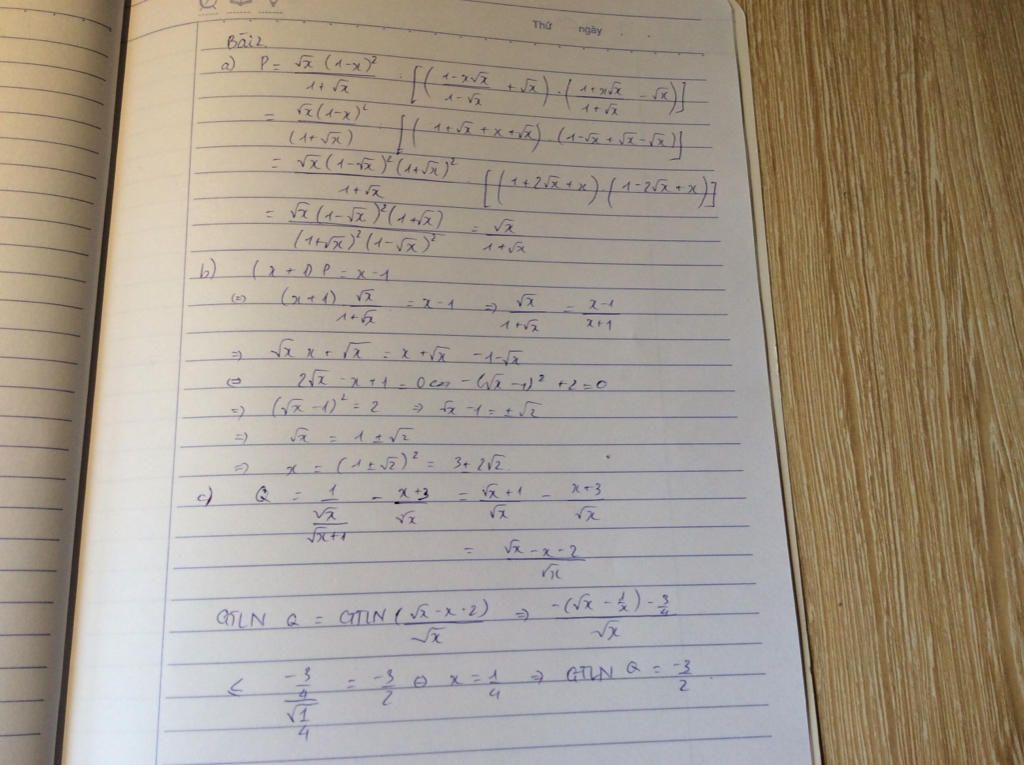 Thứ ngày
Bài 2.
a) P = √x (1-x)² / (1+√x) : [((1-x√x)/(1-√x) + √x) · ((1+x√x)/(1+√x) - √x)]
= √x(1-x)² / (1+√x) : [(1+√x+x+√x) · (1-√x+√x-√x)]
= √x(1-√x)²(1+√x)² / (1+√x) : [(1+2√x+x) · (1-2√x+x)]
= √x(1-√x)²(1+√x) / ((1+√x)²(1-√x)²) = √x / (1+√x)
b) (x+1)P = x-1
⇔ (x+1) √x/(1+√x) = x-1 ⇒ √x/(1+√x) = (x-1)/(x+1)
⇒ √x x + √x = x + √x - 1 - √x
⇔ 2√x - x + 1 = 0 ⇔ -(√x-1)² + 2 = 0
⇒ (√x-1)² = 2 ⇒ √x-1 = ±√2
⇒ √x = 1 ± √2
⇒ x = (1±√2)² = 3+2√2
c) Q = 1/(√x/(√x+1)) - (x+3)/√x = (√x+1)/√x - (x+3)/√x
= (√x-x-2)/√x
GTLN Q = GTLN (√x-x-2)/√x ⇒ (-(√x-1/x)-3/4)/√x
≤ (-3/4)/√(1/4) = -3/2 ⇔ x = 1/4 ⇒ GTLN Q = -3/2